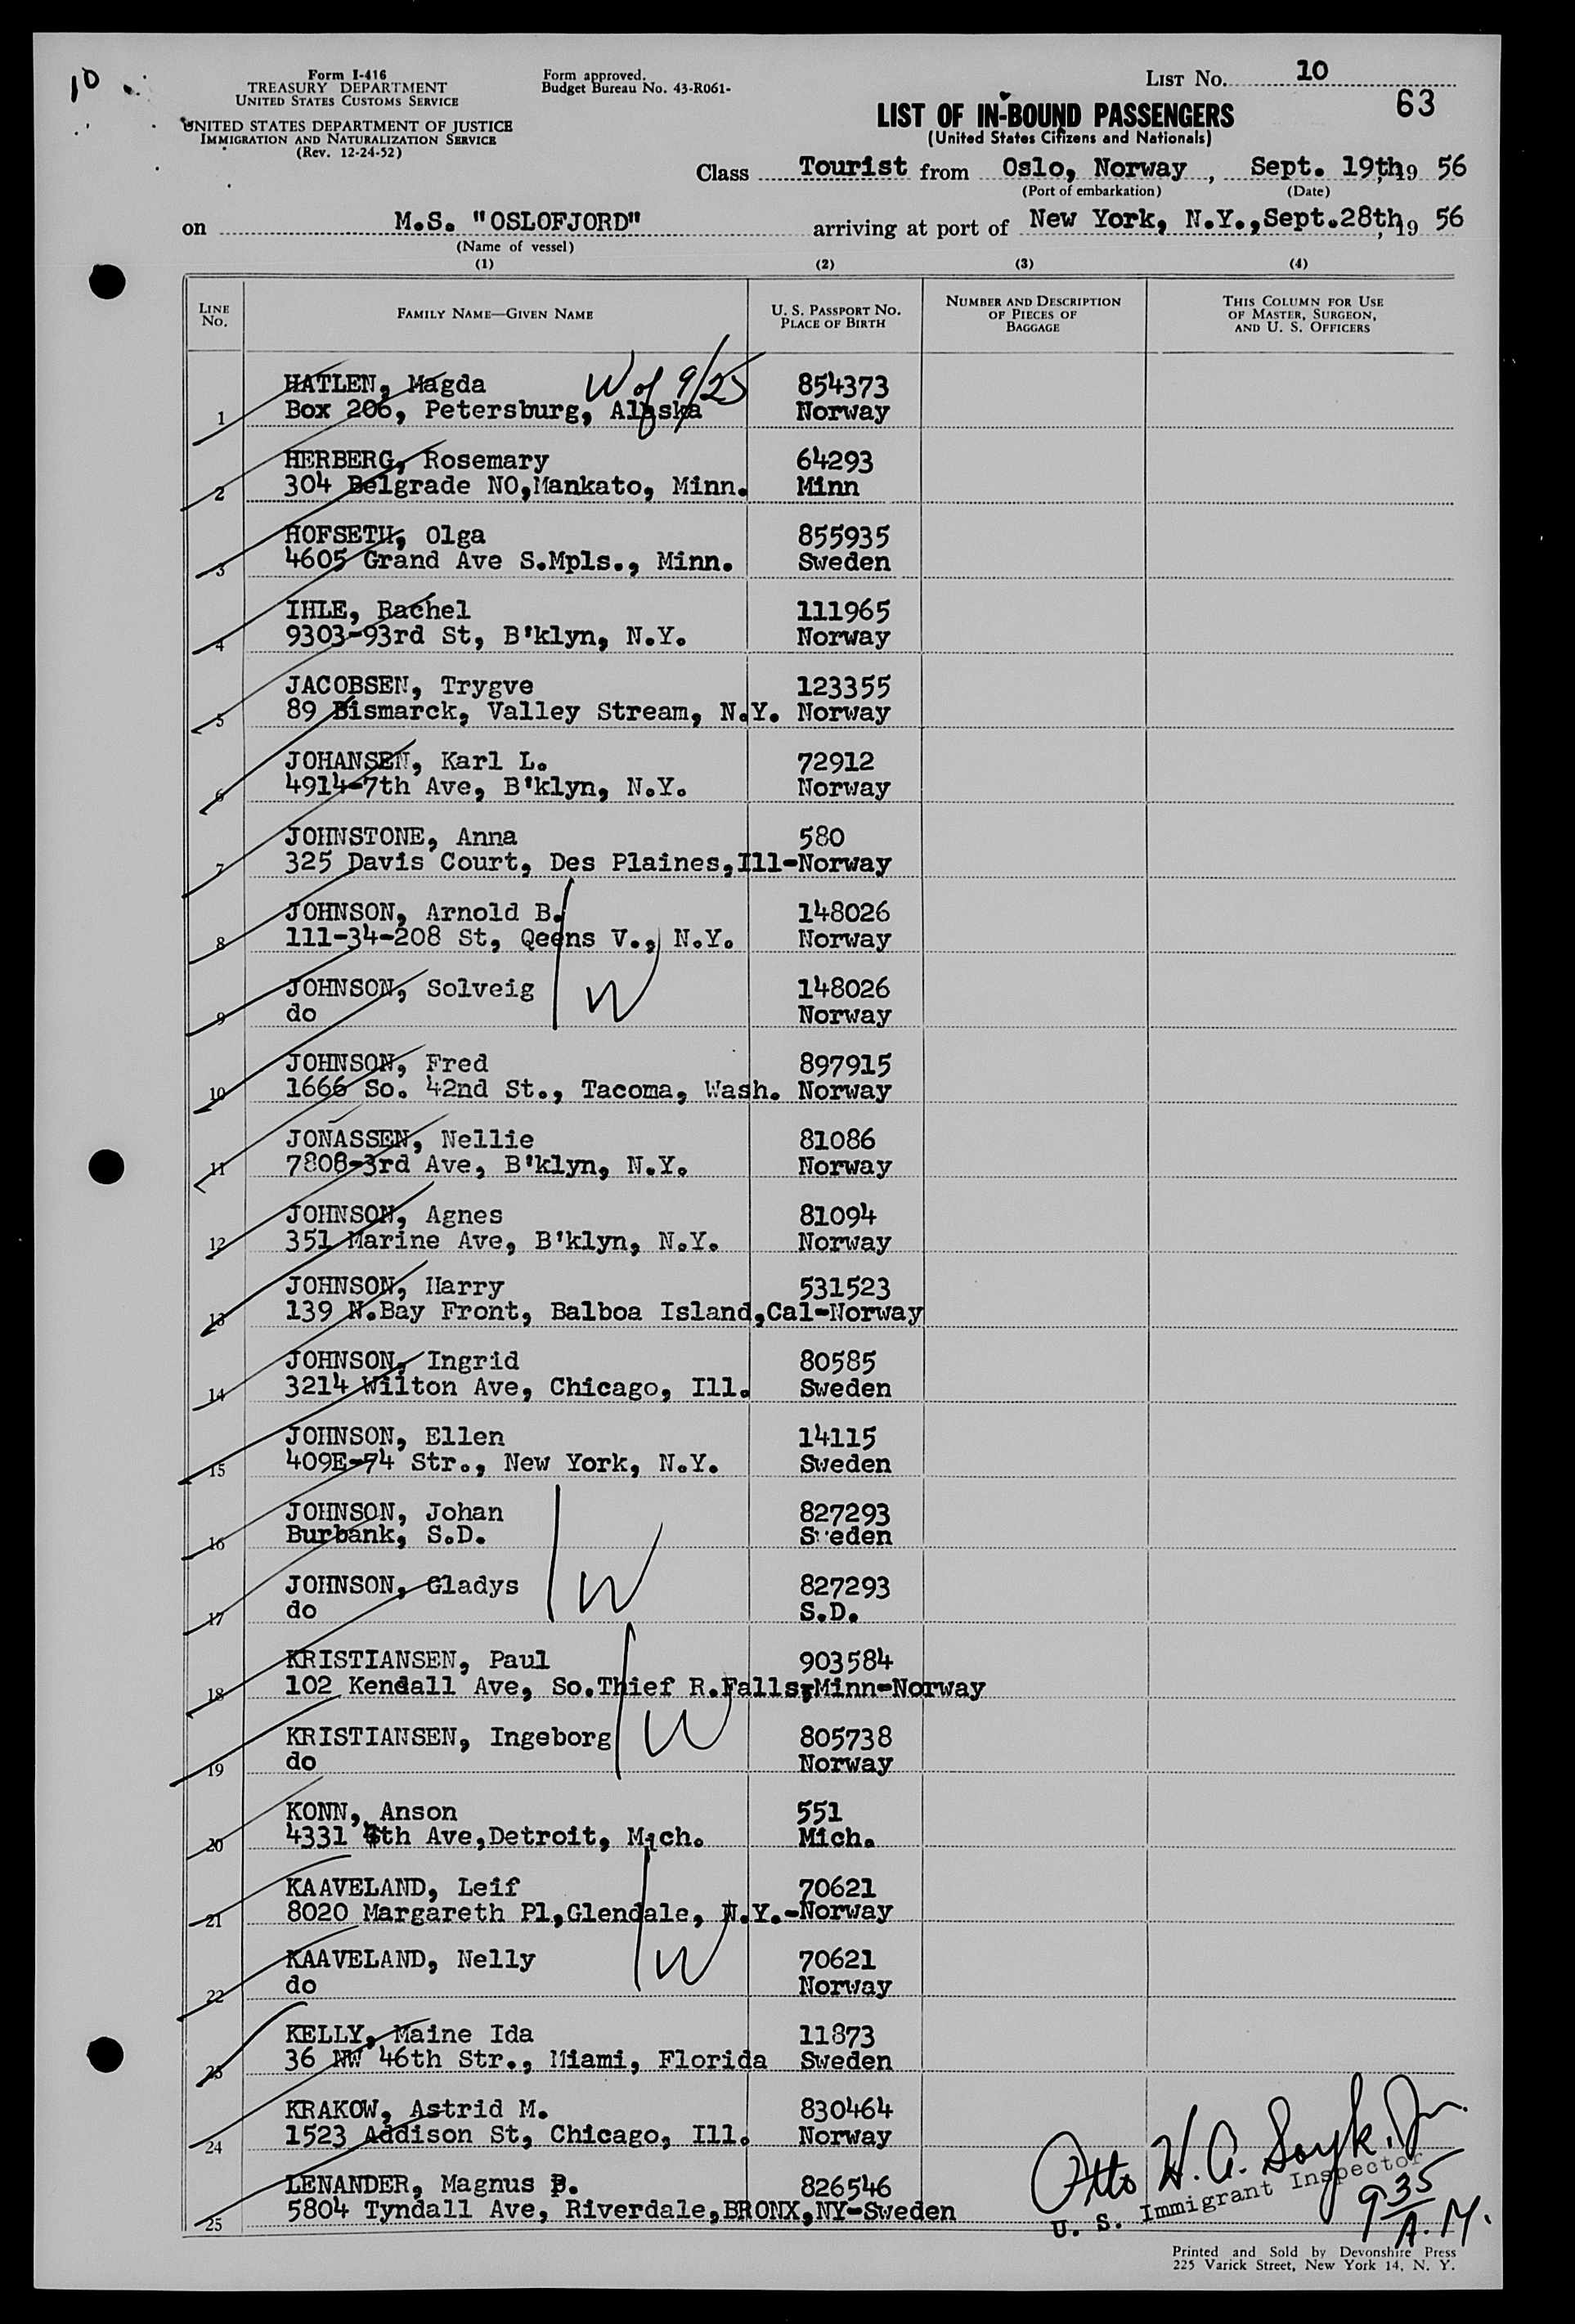 10
Form I-416
TREASURY DEPARTMENT
UNITED STATES CUSTOMS SERVICE
UNITED STATES DEPARTMENT OF JUSTICE
IMMIGRATION AND NATURALIZATION SERVICE
(Rev. 12-24-52)
Form approved.
Budget Bureau No. 43-R061-
LIST NO. 10
63
LIST OF IN-BOUND PASSENGERS
(United States Citizens and Nationals)
Class Tourist from Oslo, Norway, Sept. 19th, 19 56
(Port of embarkation) (Date)
on M.S. "OSLOFJORD" arriving at port of New York, N.Y., Sept.28th, 19 56
(Name of vessel)
(1) (2) (3) (4)
LINE NO. FAMILY NAME—GIVEN NAME U. S. PASSPORT NO. PLACE OF BIRTH NUMBER AND DESCRIPTION OF PIECES OF BAGGAGE THIS COLUMN FOR USE OF MASTER, SURGEON, AND U. S. OFFICERS
HATLEN, Magda W of 9/25 854373
1 Box 206, Petersburg, Alaska Norway
HERBERG, Rosemary 64293
2 304 Belgrade NO,Mankato, Minn. Minn
HOFSETH, Olga 855935
3 4605 Grand Ave S.Mpls., Minn. Sweden
IHLE, Rachel 111965
4 9303-93rd St, B'klyn, N.Y. Norway
JACOBSEN, Trygve 123355
5 89 Bismarck, Valley Stream, N.Y. Norway
JOHANSEN, Karl L. 72912
6 4914-7th Ave, B'klyn, N.Y. Norway
JOHNSTONE, Anna 580
7 325 Davis Court, Des Plaines,Ill-Norway
JOHNSON, Arnold B. 148026
8 111-34-208 St, Qeens V., N.Y. Norway
JOHNSON, Solveig W 148026
9 do Norway
JOHNSON, Fred 897915
10 1666 So. 42nd St., Tacoma, Wash. Norway
JONASSEN, Nellie 81086
11 7808-3rd Ave, B'klyn, N.Y. Norway
JOHNSON, Agnes 81094
12 351 Marine Ave, B'klyn, N.Y. Norway
JOHNSON, Harry 531523
13 139 N.Bay Front, Balboa Island,Cal-Norway
JOHNSON, Ingrid 80585
14 3214 Wilton Ave, Chicago, Ill. Sweden
JOHNSON, Ellen 14115
15 409E-74 Str., New York, N.Y. Sweden
JOHNSON, Johan 827293
16 Burbank, S.D. Sweden
JOHNSON, Gladys W 827293
17 do S.D.
KRISTIANSEN, Paul 903584
18 102 Kendall Ave, So.Thief R.Falls,Minn-Norway
KRISTIANSEN, Ingeborg W 805738
19 do Norway
KONN, Anson 551
20 4331 4th Ave,Detroit, Mich. Mich.
KAAVELAND, Leif 70621
21 8020 Margareth Pl,Glendale, N.Y.-Norway
KAAVELAND, Nelly W 70621
22 do Norway
KELLY, Maine Ida 11873
23 36 NW 46th Str., Miami, Florida Sweden
KRAKOW, Astrid M. 830464
24 1523 Addison St, Chicago, Ill. Norway
LENANDER, Magnus P. 826546
25 5804 Tyndall Ave, Riverdale,BRONX,NY-Sweden
Otto H. A. Soyk, Jr.
U. S. Immigrant Inspector
9 35 A.M.
Printed and Sold by Devonshire Press
225 Varick Street, New York 14, N. Y.